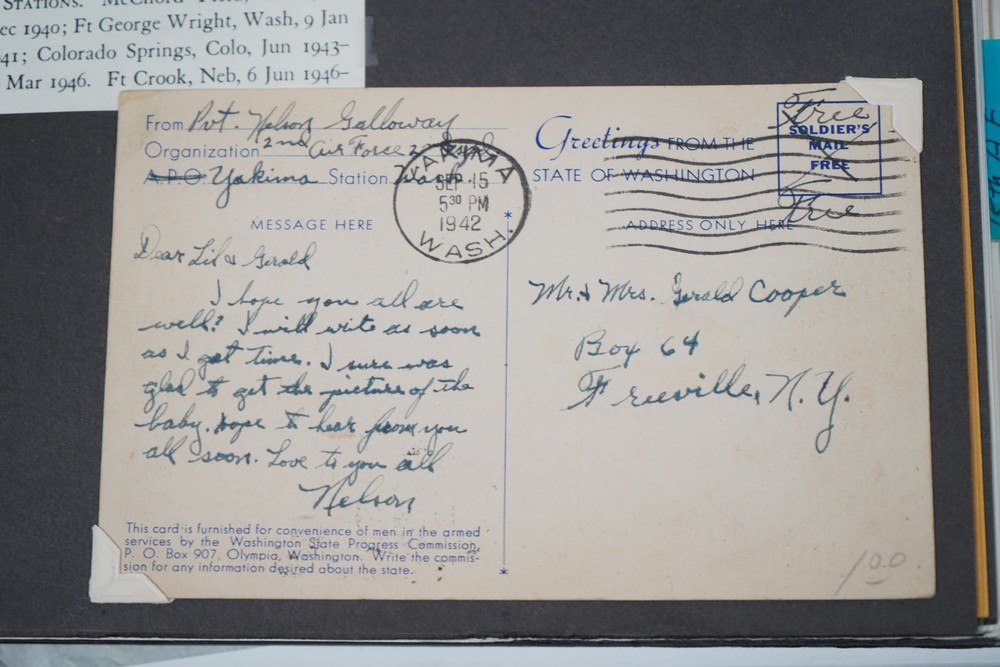 STATIONS.
ec 1940; Ft George Wright, Wash, 9 Jan
41; Colorado Springs, Colo, Jun 1943–
Mar 1946. Ft Crook, Neb, 6 Jun 1946–
From Pvt. Nelson Galloway
Organization 2nd Air Force
A.P.O. Yakima Station Wash
MESSAGE HERE
YAKIMA
SEP 15
5 30 PM
1942
WASH.
Greetings FROM THE
STATE OF WASHINGTON
Free
SOLDIER'S
MAIL
FREE
Free
ADDRESS ONLY HERE
Dear Lil & Gerald
I hope you all are
well? I will write as soon
as I get time. I sure was
glad to get the picture of the
baby. hope to hear from you
all soon. Love to you all
Nelson
Mr. & Mrs. Gerald Cooper
Box 64
Freeville, N.Y.
This card is furnished for convenience of men in the armed
services by the Washington State Progress Commission,
P. O. Box 907, Olympia, Washington. Write the commis-
sion for any information desired about the state.
10.0